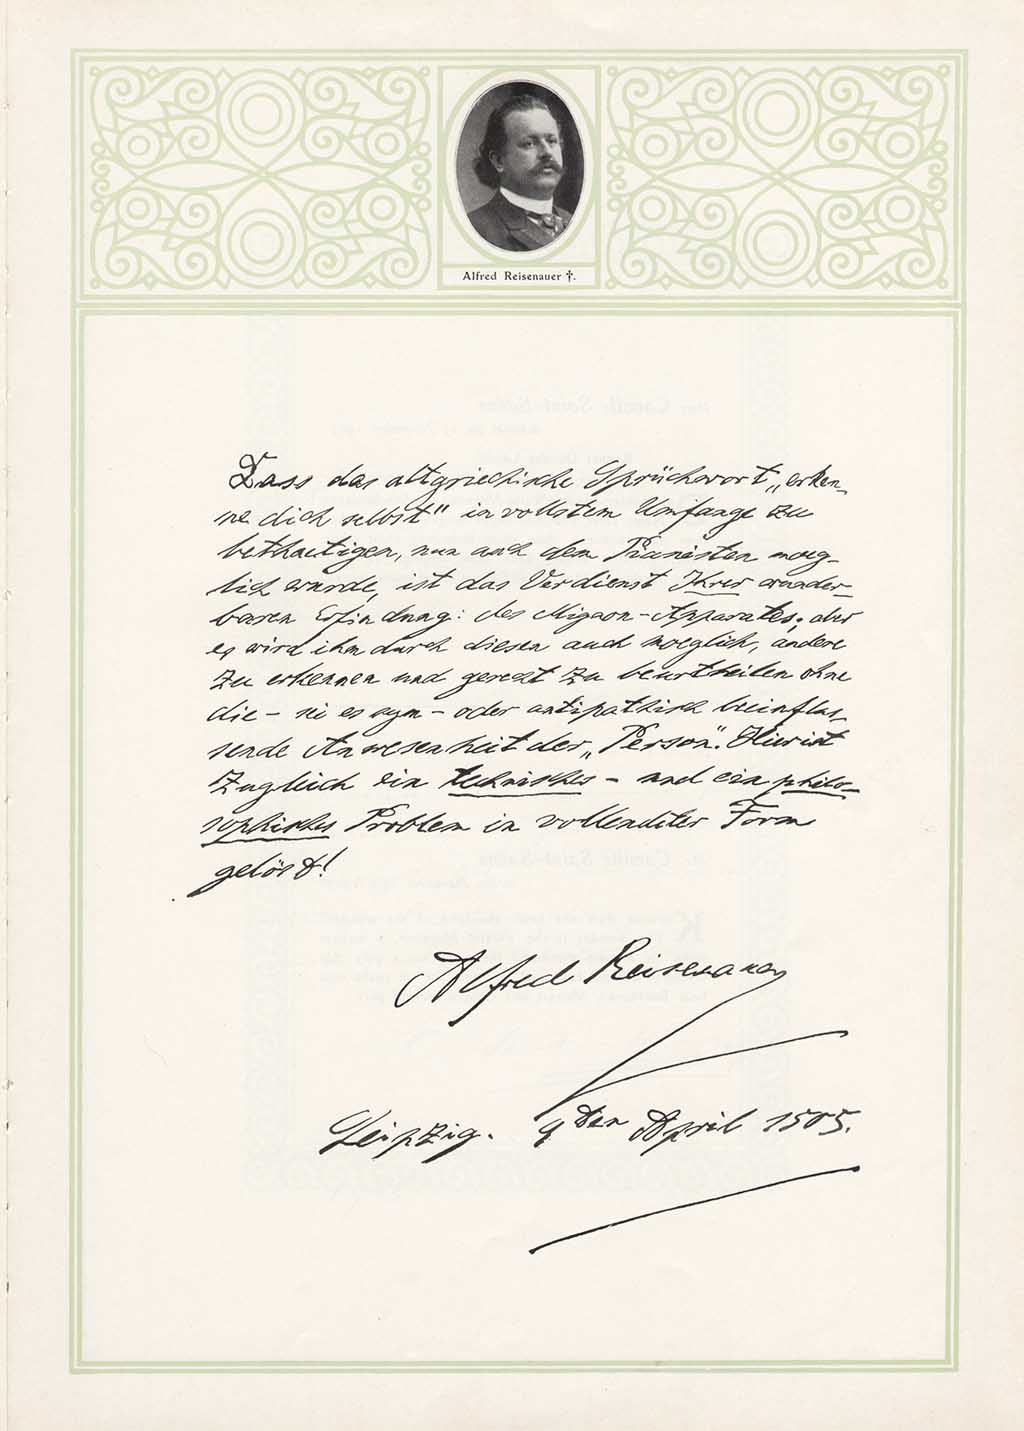 Alfred Reisenauer †.
Dass das altgriechische Sprüchwort „erken-
ne dich selbst" in vollstem Umfange zu
bethaetigen, nun auch dem Pianisten moeg-
lich wurde, ist das Verdienst Ihrer wunder-
baren Erfindung: des Mignon-Apparates; aber
es wird ihm durch diesen auch moeglich, andere
zu erkennen und gerecht zu beurtheilen ohne
die – sei es sym – oder antipathisch beeinflus-
sende Anwesenheit der „Person". Hier ist
zugleich ein technisches – und ein philo-
sophisches Problem in vollendeter Form
gelöst!
Alfred Reisenauer
Leipzig. 9ten April 1905.